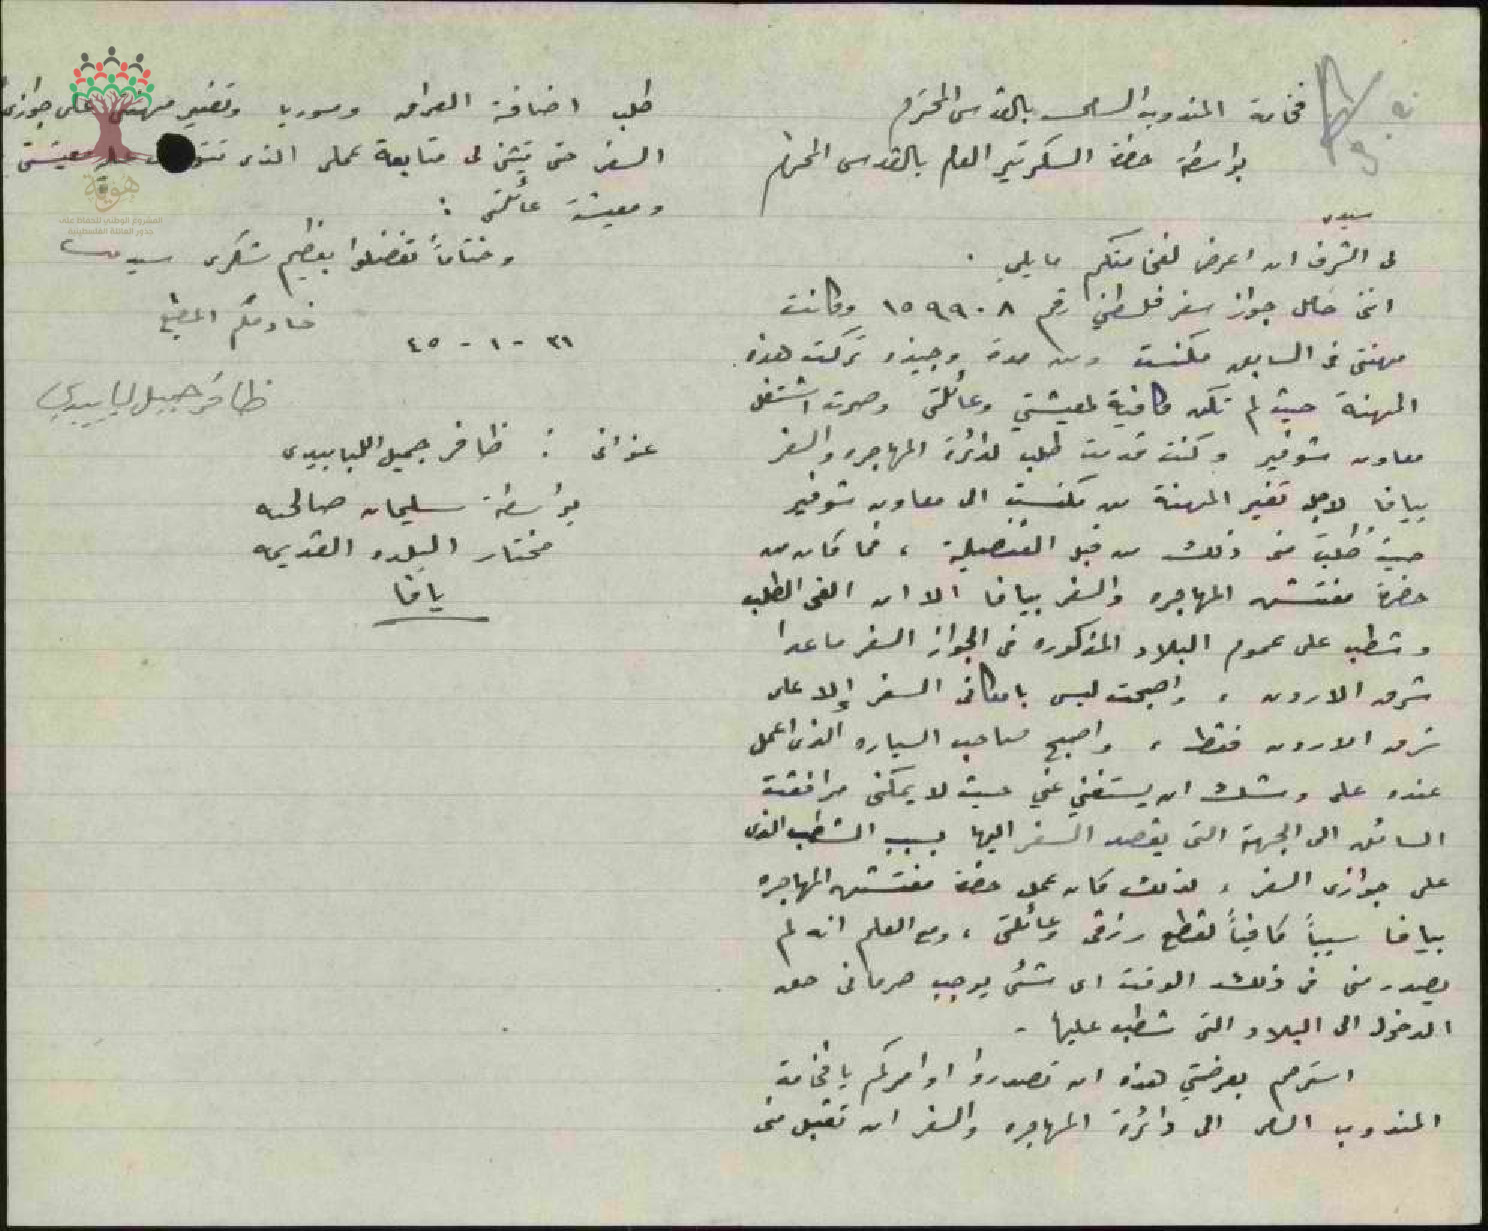 فخامة المندوب السامي بالقدس المحترم
بواسطة حضرة السكرتير العام بالقدس المحترم
سيدي
لي الشرف ان اعرض لفخامتكم ما يلي .
انني حامل جواز سفر فلسطيني رقم ١٥٩٩٠٨ وكانت
مهنتي في السابق مكنست ومن مدة وجيزه تركت هذه
المهنة حيث لم تكن كافية لمعيشتي وعائلتي وصرت اشتغل
معاون شوفير وكنت قدمت طلب لدائرة المهاجره والسفر
بيافا لاجل تغير المهنة من مكنست الى معاون شوفير
حيث طلب مني ذلك من قبل القنصلية ، فما كان من
حضرة مفتش المهاجره والسفر بيافا الا ان الغى الطلب
وشطب على عموم البلاد المذكوره في الجواز السفر ما عدا
شرق الاردن ، واصبحت ليس بامكاني السفر إلا على
شرق الاردن فقط ، واصبح صاحب السياره الذي اعمل
عنده على وشك ان يستغني عني حيث لا يمكنني مرافقت
السائق الى الجهة التي يقصد السفر اليها بسبب الشطب الذي
على جوازي السفر ، لذلك كان عمل حضرة مفتش المهاجره
بيافا سبباً كافياً لقطع رزقي وعائلتي ، ومع العلم انه لم
يصدر مني في ذلك الوقت اي شئ يوجب حرماني حق
الدخول الى البلاد التي شطب عليها .
استرحم بعرضتي هذه ان تصدروا اوامركم يا فخامة
المندوب السامي الى دائرة المهاجره والسفر ان تقبل مني
طلب اضافة العراق وسوريا وتغير مهنتي على جوازي
السفر حتى يتسنى لي متابعة عملي الذي عليه معيشتي
ومعيشة عائلتي :
وختاماً تفضلوا بعظيم شكري سيدي
خادمكم المطيع
٣١ - ١ - ٤٥
ظافر جميل لبابيدي
عنواني : ظافر جميل اللبابيدي
بواسطة سليمان صالحه
مختار البلده القديمه
يافا
هوية
المشروع الوطني للحفاظ على
جذور العائلة الفلسطينية